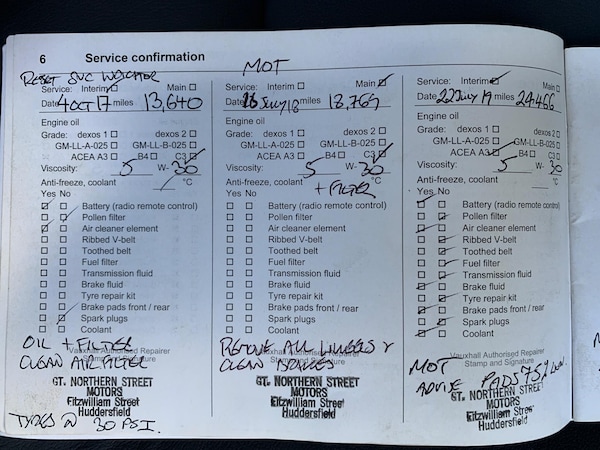 6 Service confirmation
RESET SVC WATCHER
Service: Interim Main
Date 4 OCT 17 miles 13,640
Engine oil
Grade: dexos 1 dexos 2
GM-LL-A-025 GM-LL-B-025
ACEA A3 B4 C3
Viscosity: 5 W- 30
Anti-freeze, coolant °C
Yes No
Battery (radio remote control)
Pollen filter
Air cleaner element
Ribbed V-belt
Toothed belt
Fuel filter
Transmission fluid
Brake fluid
Tyre repair kit
Brake pads front / rear
Spark plugs
Coolant
OIL + FILTER
Vauxhall Authorised Repairer
Stamp and Signature
CLEAN AIR FILTER
GT. NORTHERN STREET
MOTORS
Fitzwilliam Street
Huddersfield
TYRES @ 30 PSI.
MOT
Service: Interim Main
Date 18 July 18 miles 13,769
Engine oil
Grade: dexos 1 dexos 2
GM-LL-A-025 GM-LL-B-025
ACEA A3 B4 C3
Viscosity: 5 W- 30
Anti-freeze, coolant °C
+ FILTER
Yes No
Battery (radio remote control)
Pollen filter
Air cleaner element
Ribbed V-belt
Toothed belt
Fuel filter
Transmission fluid
Brake fluid
Tyre repair kit
Brake pads front / rear
Spark plugs
Coolant
REMOVE ALL WHEELS &
Vauxhall Authorised Repairer
Stamp and Signature
CLEAN BRAKES
GT. NORTHERN STREET
MOTORS
Fitzwilliam Street
Huddersfield
Service: Interim Main
Date 22 July 19 miles 24,466
Engine oil
Grade: dexos 1 dexos 2
GM-LL-A-025 GM-LL-B-025
ACEA A3 B4 C3
Viscosity: 5 W- 30
Anti-freeze, coolant °C
Yes No
Battery (radio remote control)
Pollen filter
Air cleaner element
Ribbed V-belt
Toothed belt
Fuel filter
Transmission fluid
Brake fluid
Tyre repair kit
Brake pads front / rear
Spark plugs
Coolant
MOT
Vauxhall Authorised Repairer
Stamp and Signature
ADVISE PADS 75%
GT. NORTHERN STREET
MOTORS
Fitzwilliam Street
Huddersfield